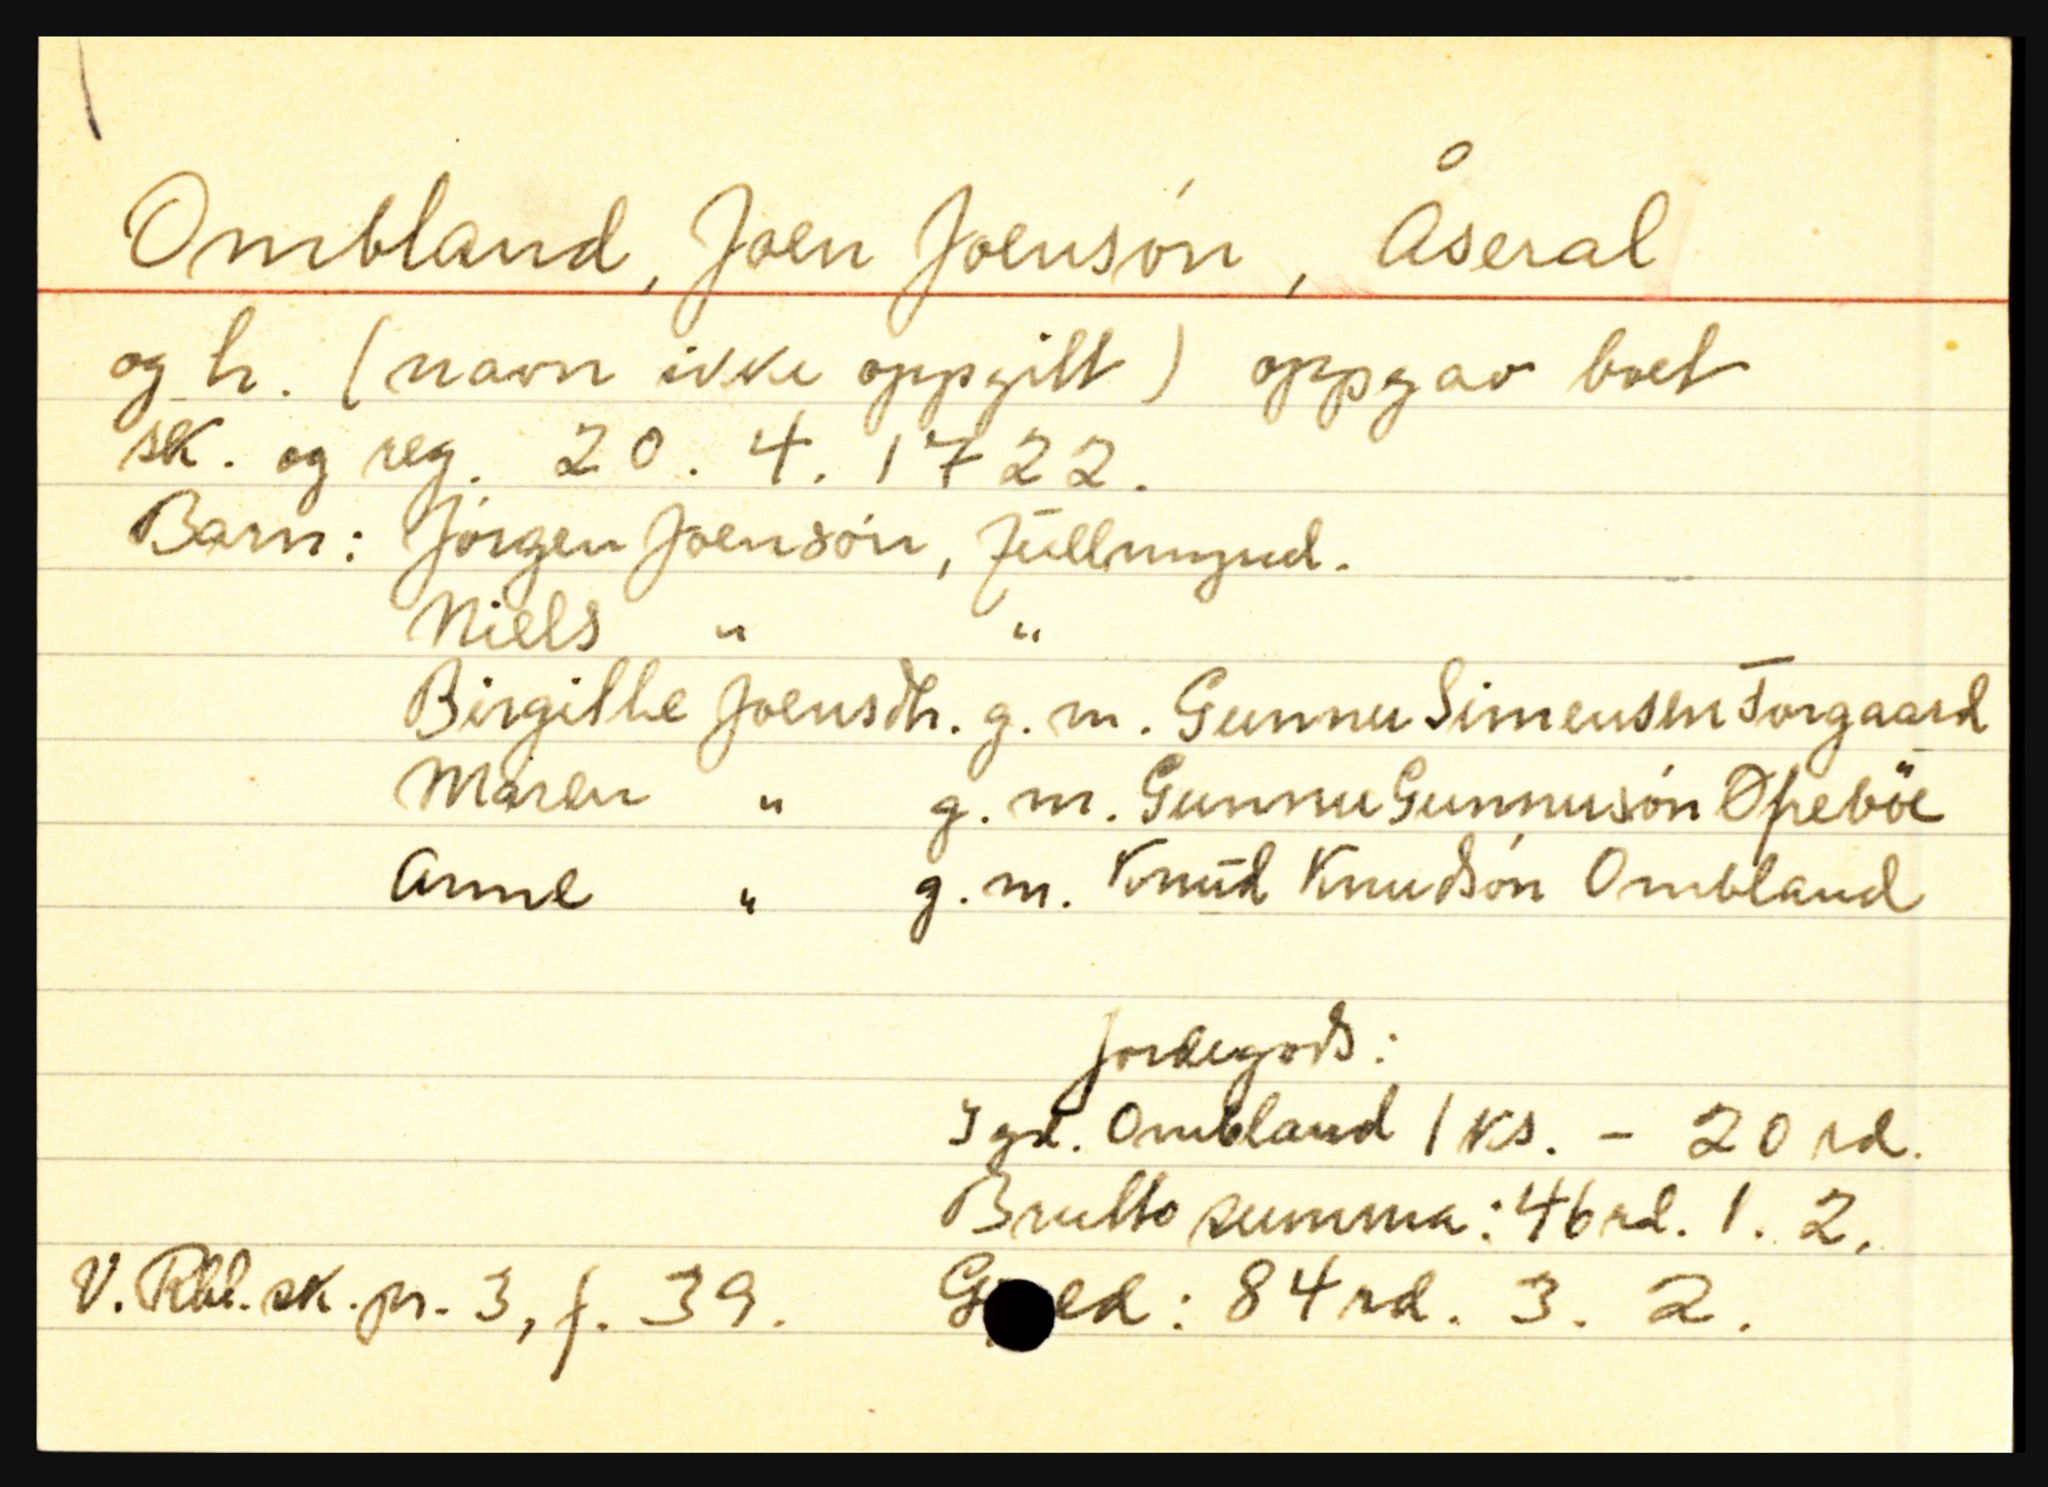 Ombland, Joen Joensón, Åseral
og h. (navn ikke oppgitt) oppgav boet
sk. og reg. 20. 4. 1722.
Barn: Jórgen Joensón, fŭllmynd.
Niels " "
Birgitthe Joensdh. g. m. Gunnu Simensen Torgaard
Maren " g. m. Gunnu Gunnusón Øpeböe
Anne " g. m. Knŭd Knudsón Ombland
Jordegods:
I gd. Ombland 1 ks. - 20 rd.
Brutto summa: 46 rd. 1. 2.
V. Rbl. sk. pr. 3, f. 39. Gjeld: 84 rd. 3. 2.